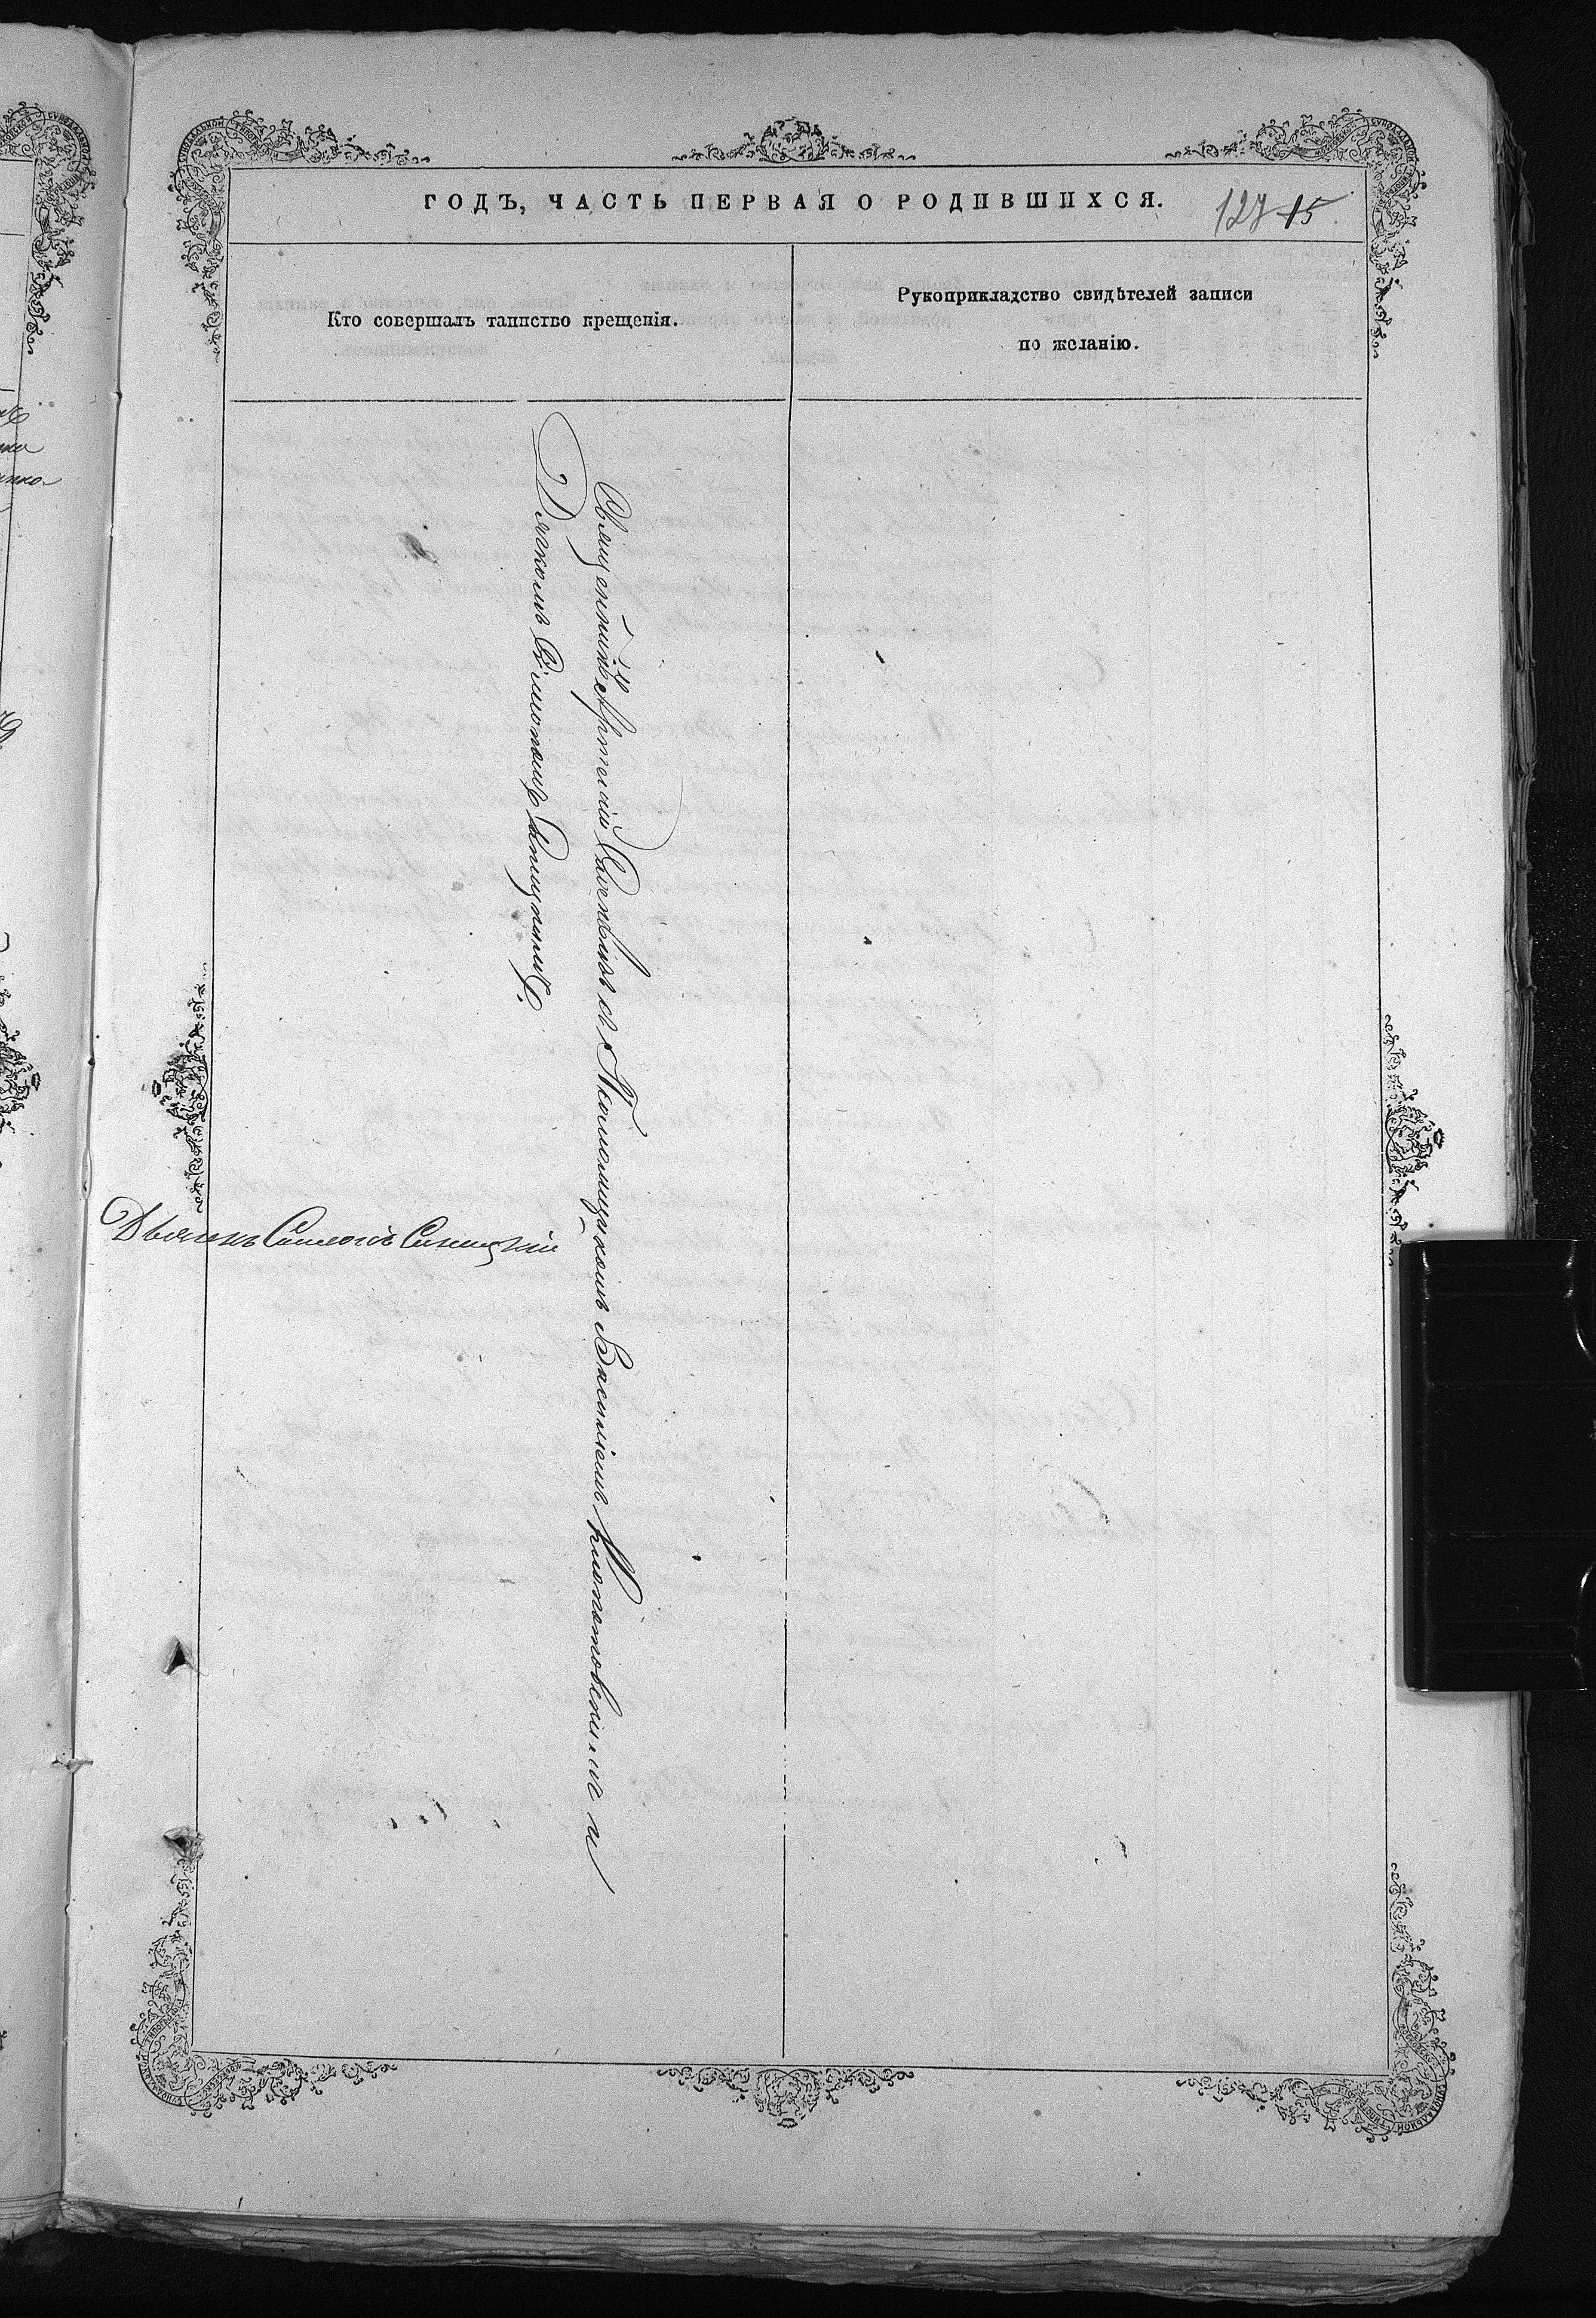 ГОДЪ, ЧАСТЬ ПЕРВАЯ О РОДИВШИХСЯ.
127 15.
Кто совершалъ таинство крещенія.
Рукоприкладство свидѣтелей записи
по желанію.
Священникъ Артемій с Псаломщикомъ Василіемъ и
Дьякомъ Симономъ Синицкимъ.
Дьякъ Симонъ Синицкій